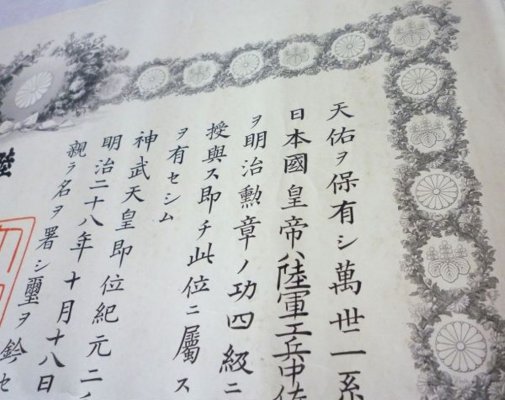 天佑ヲ保有シ萬世一系
日本國皇帝ハ陸軍工兵中佐
ヲ明治勲章ノ功四級ニ
授與ス即チ此位ニ屬ス
ヲ有セシム
神武天皇即位紀元二
明治二十八年十月十八日
親ラ名ヲ署シ璽ヲ鈐セ
陸